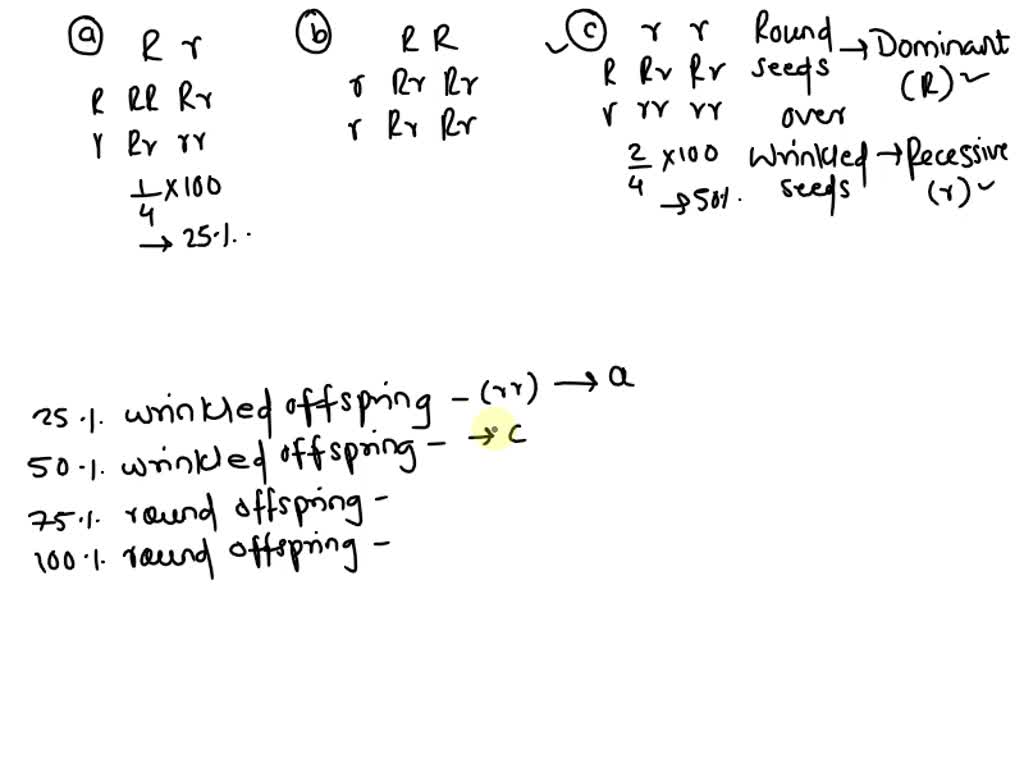 ⓐ R r
R RR Rr
r Rr rr
1/4 × 100
→ 25%.
ⓑ R R
r Rr Rr
r Rr Rr
✓ ⓒ r r
R Rr Rr
r rr rr
2/4 × 100
→ 50%.
Round seeds → Dominant (R) ✓
over
Wrinkled seeds → Recessive (r) ✓
25% wrinkled offspring - (rr) → a
50% wrinkled offspring - → c
75% round offspring -
100% round offspring -